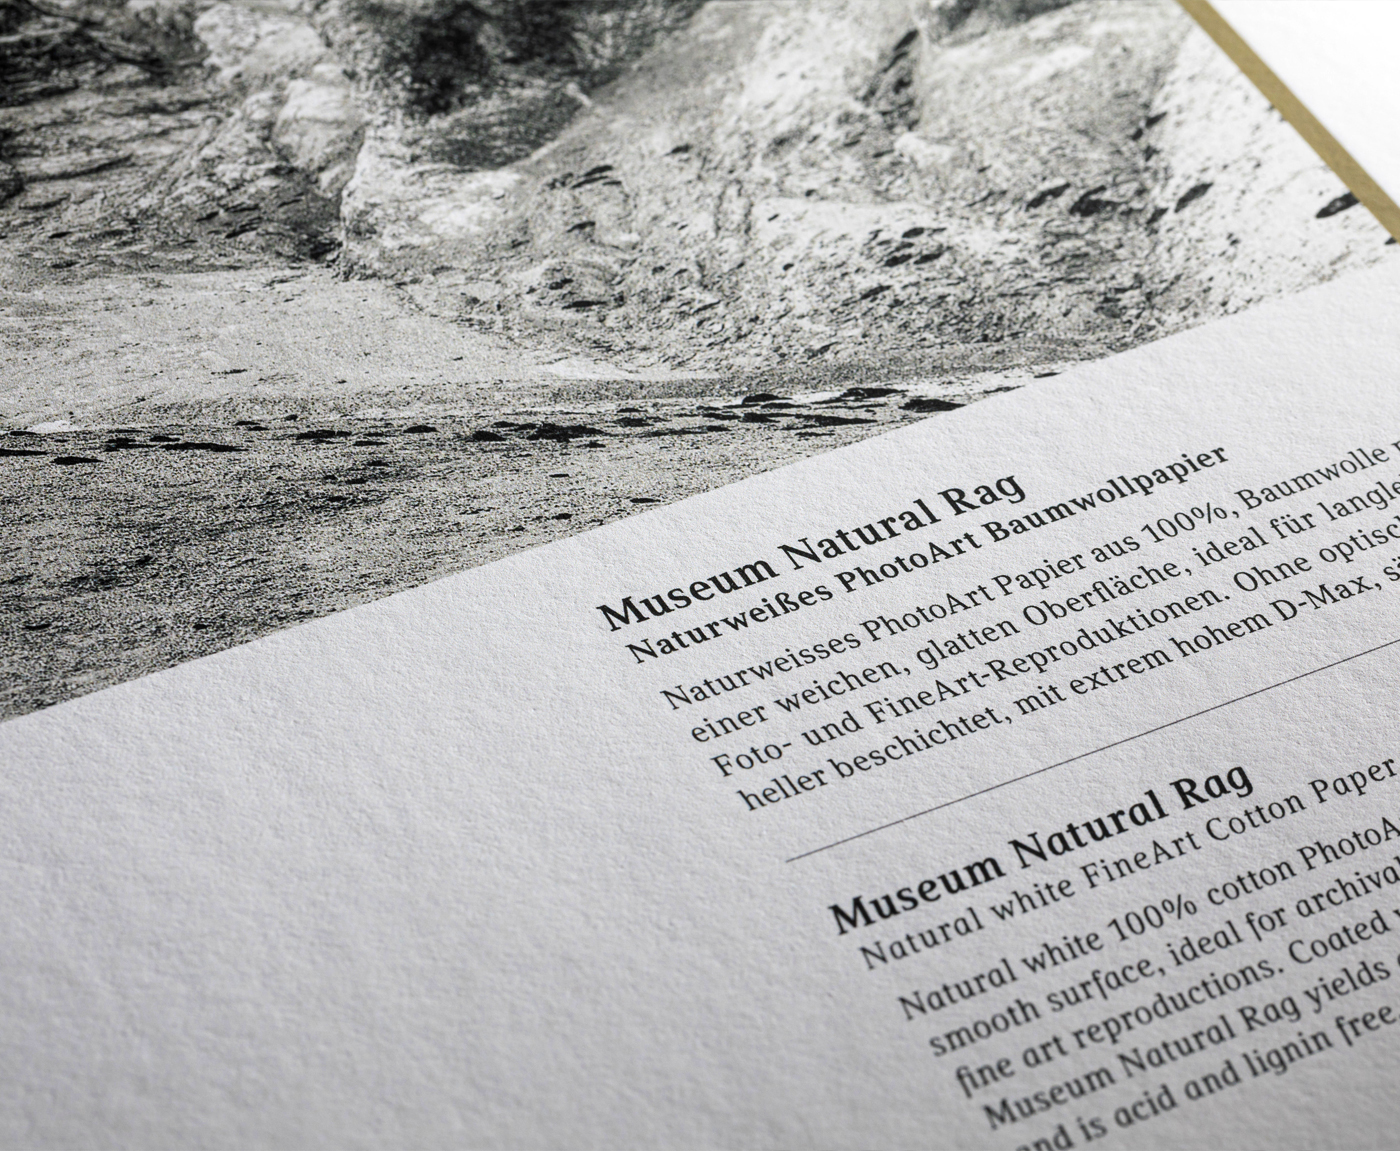 Museum Natural Rag
Naturweißes PhotoArt Baumwollpapier
Naturweisses PhotoArt Papier aus 100%, Baumwolle
einer weichen, glatten Oberfläche, ideal für
Foto- und FineArt-Reproduktionen. Ohne
heller beschichtet, mit extrem hohem D-Max,
Museum Natural Rag
Natural white FineArt Cotton Paper
Natural white 100% cotton
smooth surface, ideal for
fine art reproductions. Coated
Museum Natural Rag yields
and is acid and lignin free.